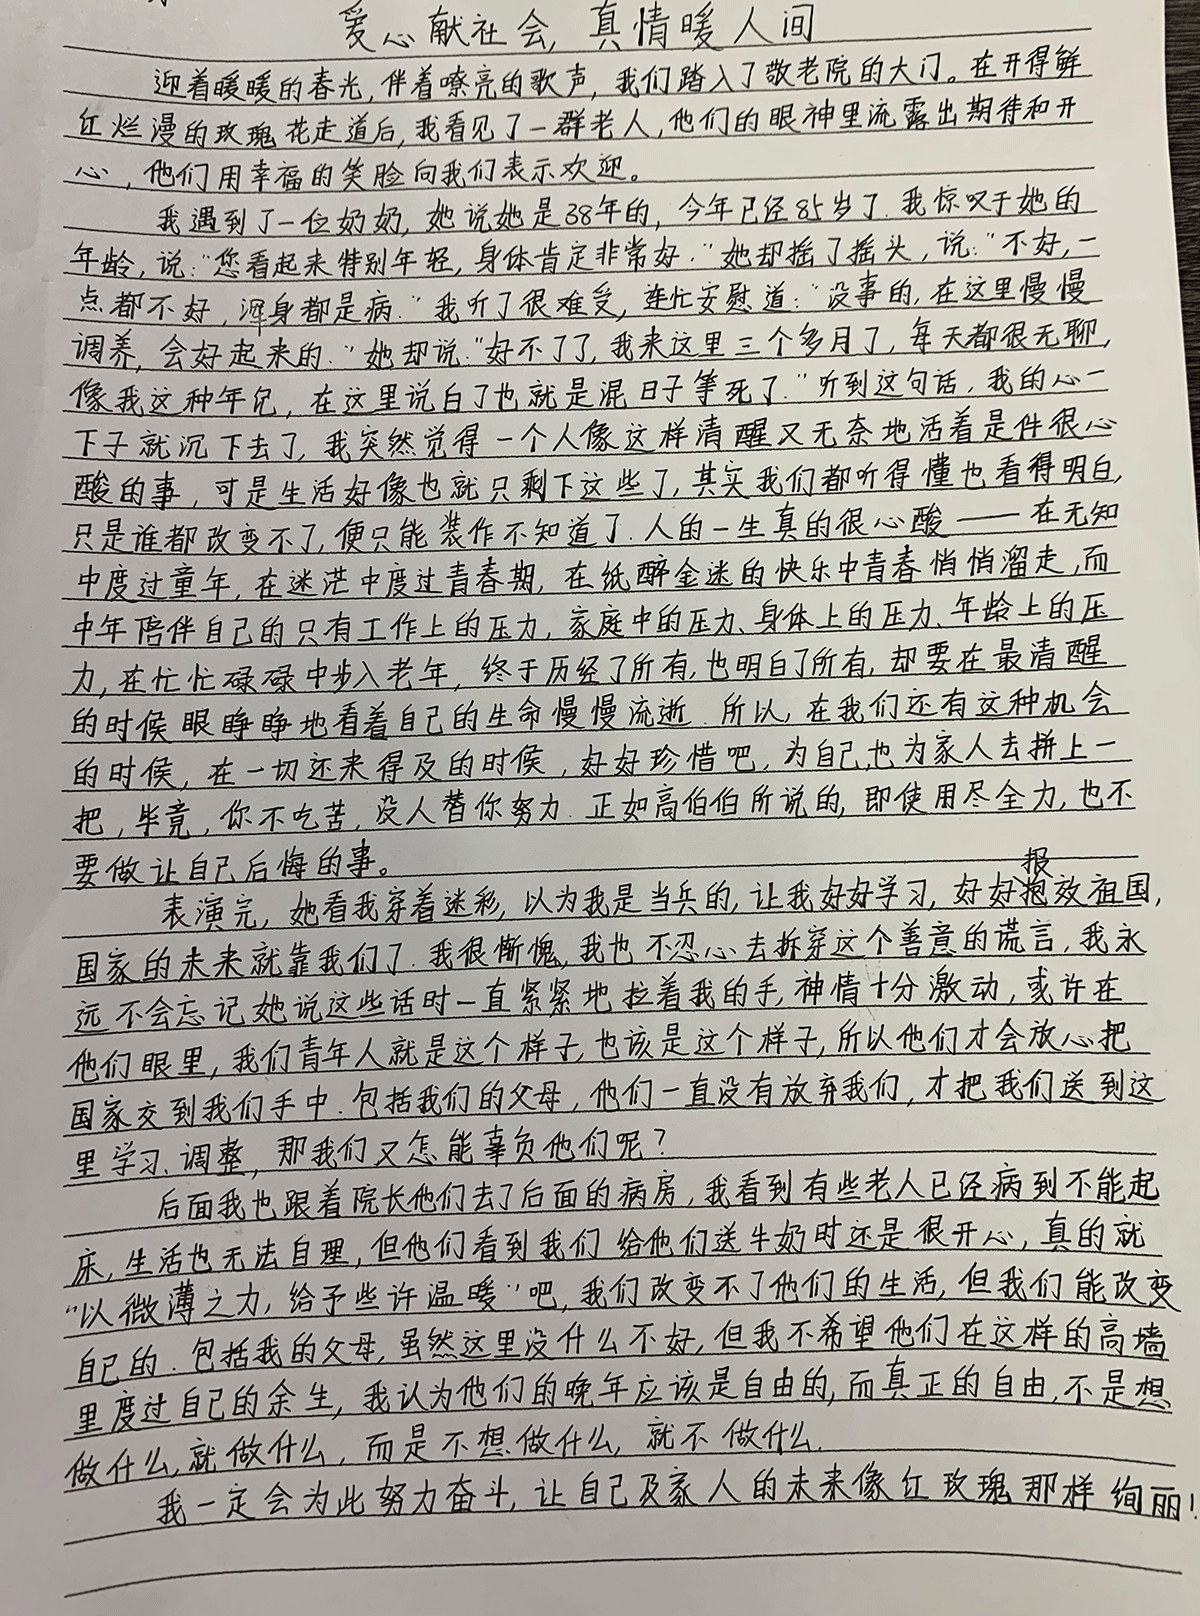 爱心献社会，真情暖人间
迎着暖暖的春光，伴着嘹亮的歌声，我们踏入了敬老院的大门。在开得鲜
红烂漫的玫瑰花走道后，我看见了一群老人，他们的眼神里流露出期待和开
心，他们用幸福的笑脸向我们表示欢迎。
我遇到了一位奶奶，她说她是38年的，今年已经85岁了.我惊叹于她的
年龄，说:“您看起来特别年轻，身体肯定非常好.”她却摇了摇头，说:“不好，一
点都不好，浑身都是病.”我听了很难受，连忙安慰道:“没事的，在这里慢慢
调养，会好起来的.”她却说:“好不了了，我来这里三个多月了，每天都很无聊，
像我这种年纪，在这里说白了也就是混日子等死了.”听到这句话，我的心一
下子就沉下去了，我突然觉得一个人像这样清醒又无奈地活着是件很心
酸的事，可是生活好像也就只剩下这些了，其实我们都听得懂也看得明白，
只是谁都改变不了，便只能装作不知道了.人的一生真的很心酸——在无知
中度过童年，在迷茫中度过青春期，在纸醉金迷的快乐中青春悄悄溜走，而
中年陪伴自己的只有工作上的压力，家庭中的压力、身体上的压力、年龄上的压
力，在忙忙碌碌中步入老年，终于历经了所有，也明白了所有，却要在最清醒
的时候眼睁睁地看着自己的生命慢慢流逝.所以，在我们还有这种机会
的时候，在一切还来得及的时候，好好珍惜吧，为自己，也为家人去拼上一
把，毕竟，你不吃苦，没人替你努力.正如高伯伯所说的，即使用尽全力，也不
要做让自己后悔的事。
表演完，她看我穿着迷彩，以为我是当兵的，让我好好学习，好好报效祖国，
国家的未来就靠我们了.我很惭愧，我也不忍心去拆穿这个善意的谎言，我永
远不会忘记她说这些话时一直紧紧地拉着我的手，神情十分激动，或许在
他们眼里，我们青年人就是这个样子，也该是这个样子，所以他们才会放心把
国家交到我们手中.包括我们的父母，他们一直没有放弃我们，才把我们送到这
里学习、调整，那我们又怎能辜负他们呢？
后面我也跟着院长他们去了后面的病房，我看到有些老人已经病到不能起
床，生活也无法自理，但他们看到我们给他们送牛奶时还是很开心，真的就
“以微薄之力，给予些许温暖”吧，我们改变不了他们的生活，但我们能改变
自己的.包括我的父母，虽然这里没什么不好，但我不希望他们在这样的高墙
里度过自己的余生，我认为他们的晚年应该是自由的，而真正的自由，不是想
做什么，就做什么，而是不想做什么，就不做什么.
我一定会为此努力奋斗，让自己及家人的未来像红玫瑰那样绚丽！